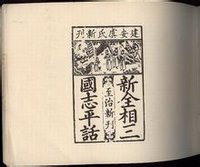 建安虞氏新刊
新全相三
國志平話
至治新刊